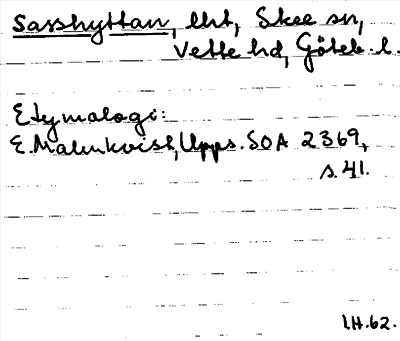 Sasshyttan, lht, Skee sn,
Vette hd, Göteb. l.
Etymologi:
E. Malmkvist, Upps. SOA 2369,
s. 41.
I.H. 62.